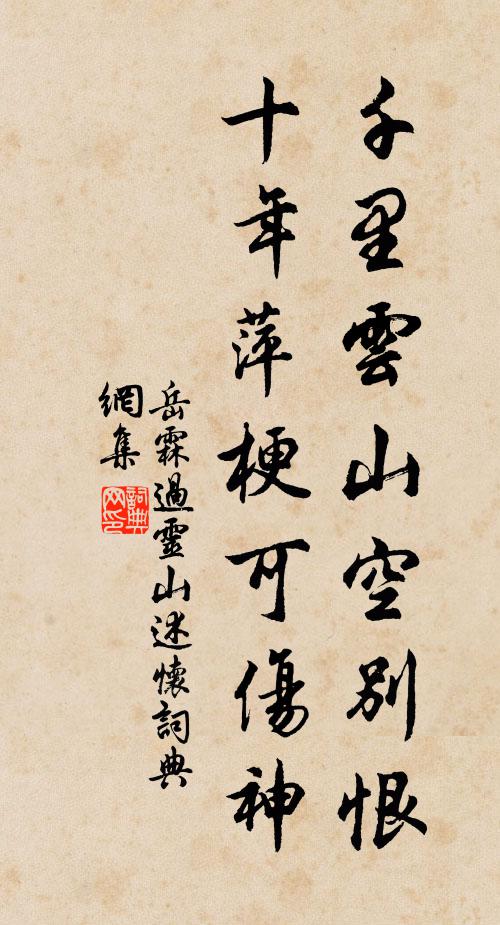 千里雲山空別恨
十年萍梗可傷神
岳霖過靈山述懷詞典
網集
詞典
网印